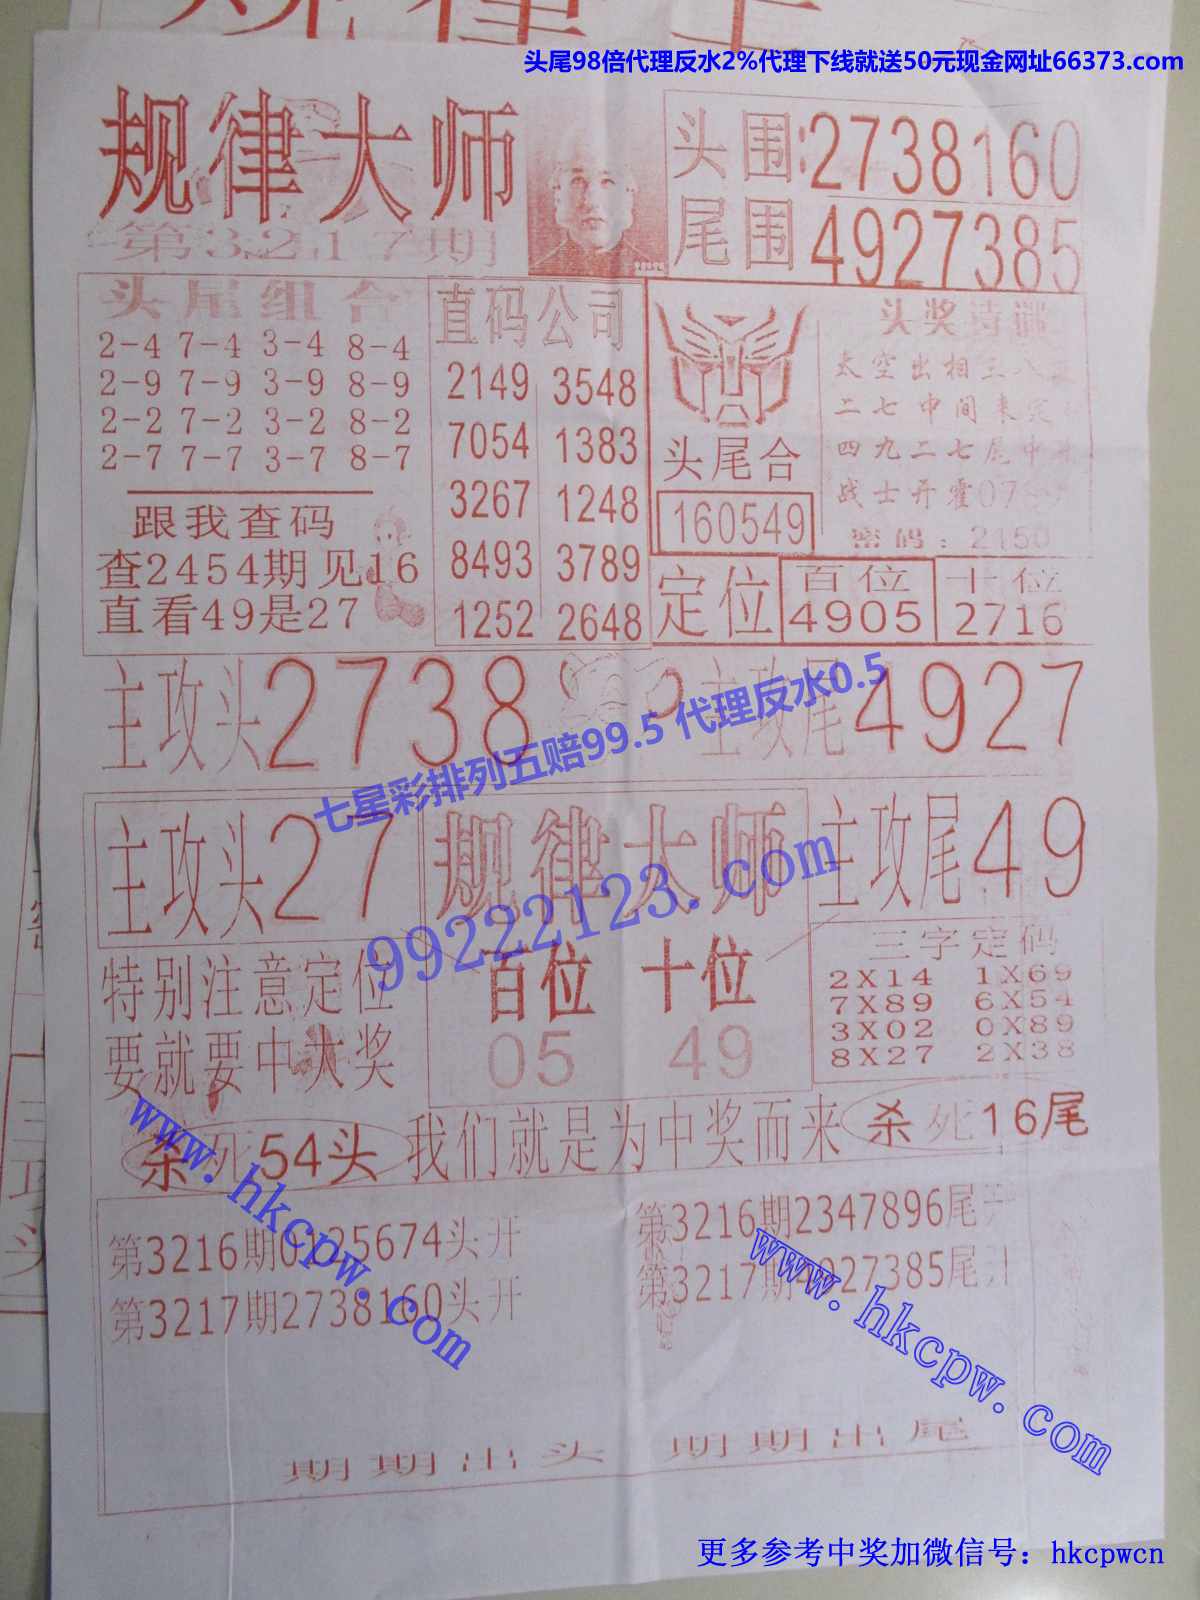 头尾98倍代理反水2%代理下线就送50元现金网址66373.com
规律大师
第3217期
头围:2738160
尾围4927385
头尾组合
2-4 7-4 3-4 8-4
2-9 7-9 3-9 8-9
2-2 7-2 3-2 8-2
2-7 7-7 3-7 8-7
跟我查码
查2454期见16
直看49是27
直码公司
2149 3548
7054 1383
3267 1248
8493 3789
1252 2648
头尾合
160549
头奖诗谜
太空出相三八
二七中间来定
四九二七尾中
战士开霍07
密码:2150
定位
百位
4905
十位
2716
主攻头2738
主攻尾4927
七星彩排列五赔99.5 代理反水0.5
主攻头27
规律大师
主攻尾49
99222123.com
特别注意定位
要就要中大奖
百位 十位
05 49
三字定码
2X14 1X69
7X89 6X54
3X02 0X89
8X27 2X38
杀死54头
我们就是为中奖而来
杀死16尾
www.hkcpw.com
第3216期0125674头开
第3217期2738160头开
第3216期2347896尾开
第3217期4927385尾开
www.hkcpw.com
期期出头 期期出尾
更多参考中奖加微信号：hkcpwcn